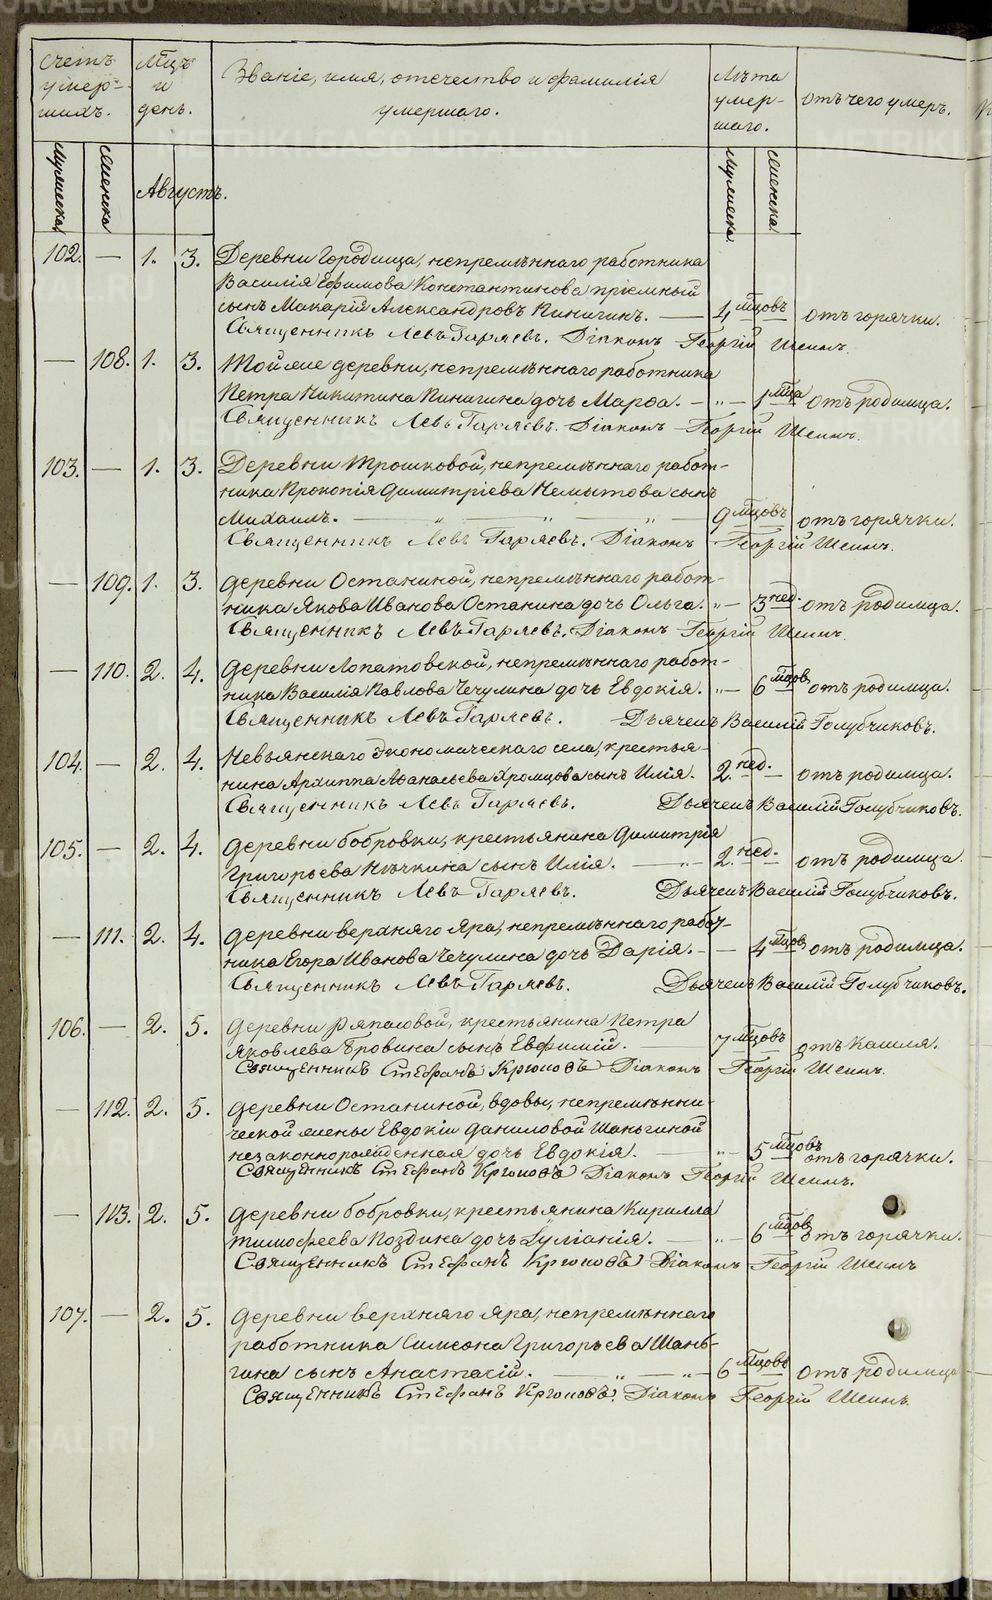 METRIKI.GASO-URAL.RU
Счетъ умер-шихъ.
Мѣсяцъ и день.
Званіе, имя, отечество и фамилія
умершаго.
Лѣта умер-шаго.
отъ чего умеръ.
Мужеска
Женска
Августъ.
Мужеска
Женска
102. — 1. 3. Деревни Городища, непремѣннаго работника
Василія Ефимова Константинова пріемный
сынъ Макарій Александровъ Кинигинъ. — 4 мцовъ отъ горячки.
Священникъ Левъ Гаряевъ. Діаконъ Георгій Шеинъ.
— 108. 1. 3. Той же деревни, непремѣннаго работника
Петра Никитина Кинигина дочь Марѳа. — „ — 1 мца отъ родимца.
Священникъ Левъ Гаряевъ. Діаконъ Георгій Шеинъ.
103. — 1. 3. Деревни Трошковой, непремѣннаго работ-
ника Прокопія Димитріева Немытова сынъ
Михаилъ. — „ — „ — „ — 9 мцовъ отъ горячки.
Священникъ Левъ Гаряевъ. Діаконъ Георгій Шеинъ.
— 109. 1. 3. Деревни Останиной, непремѣннаго работ-
ника Якова Иванова Останина дочь Ольга. „ — 3 нед. отъ родимца.
Священникъ Левъ Гаряевъ. Діаконъ Георгій Шеинъ.
— 110. 2. 4. Деревни Лопатовской, непремѣннаго работ-
ника Василія Павлова Чечулина дочь Евдокія. „ — 6 мцовъ отъ родимца.
Священникъ Левъ Гаряевъ. Дьячецъ Василій Голубчиковъ.
104. — 2. 4. Невьянскаго Экономическаго села, крестья-
нина Архиппа Аѳанасьева Хромцова сынъ Илія. 2. нед. — отъ родимца.
Священникъ Левъ Гаряевъ. Дьячецъ Василій Голубчиковъ.
105. — 2. 4. Деревни Бобровки, крестьянина Димитрія
Григорьева Кычкина сынъ Илія. — „ — 2. нед. — отъ родимца.
Священникъ Левъ Гаряевъ. Дьячецъ Василій Голубчиковъ.
— 111. 2. 4. Деревни Верхняго Яра, непремѣннаго работ-
ника Егора Иванова Чечулина дочь Дарія. — — 4 мцов отъ родимца.
Священникъ Левъ Гаряевъ. Дьячецъ Василій Голубчиковъ.
106. — 2. 5. Деревни Ряпасовой, крестьянина Петра
Яковлева Бровина сынъ Евфимій. — 7 мцовъ отъ Кашля.
Священникъ Стефанъ Крюковъ Діаконъ Георгій Шеинъ.
— 112. 2. 5. Деревни Останиной, вдовы, непремѣнни-
ческой жены Евдокіи Даниловой Шаньгиной
незаконнорожденная дочь Евдокія. — „ — 5 мцовъ отъ горячки.
Священникъ Стефанъ Крюковъ Діаконъ Георгій Шеинъ.
— 113. 2. 5. Деревни Бобровки, крестьянина Кирилла
Тимофеева Поздина дочь Іуліанія. — „ — 6 мцов отъ горячки.
Священникъ Стефанъ Крюковъ Діаконъ Георгій Шеинъ
107. — 2. 5. Деревни Верхняго Яра, непремѣннаго
работника Симеона Григорьева Шань-
гина сынъ Анастасій. — „ — „ — 6 мцовъ отъ родимца
Священникъ Стефанъ Крюковъ. Діаконъ Георгій Шеинъ.